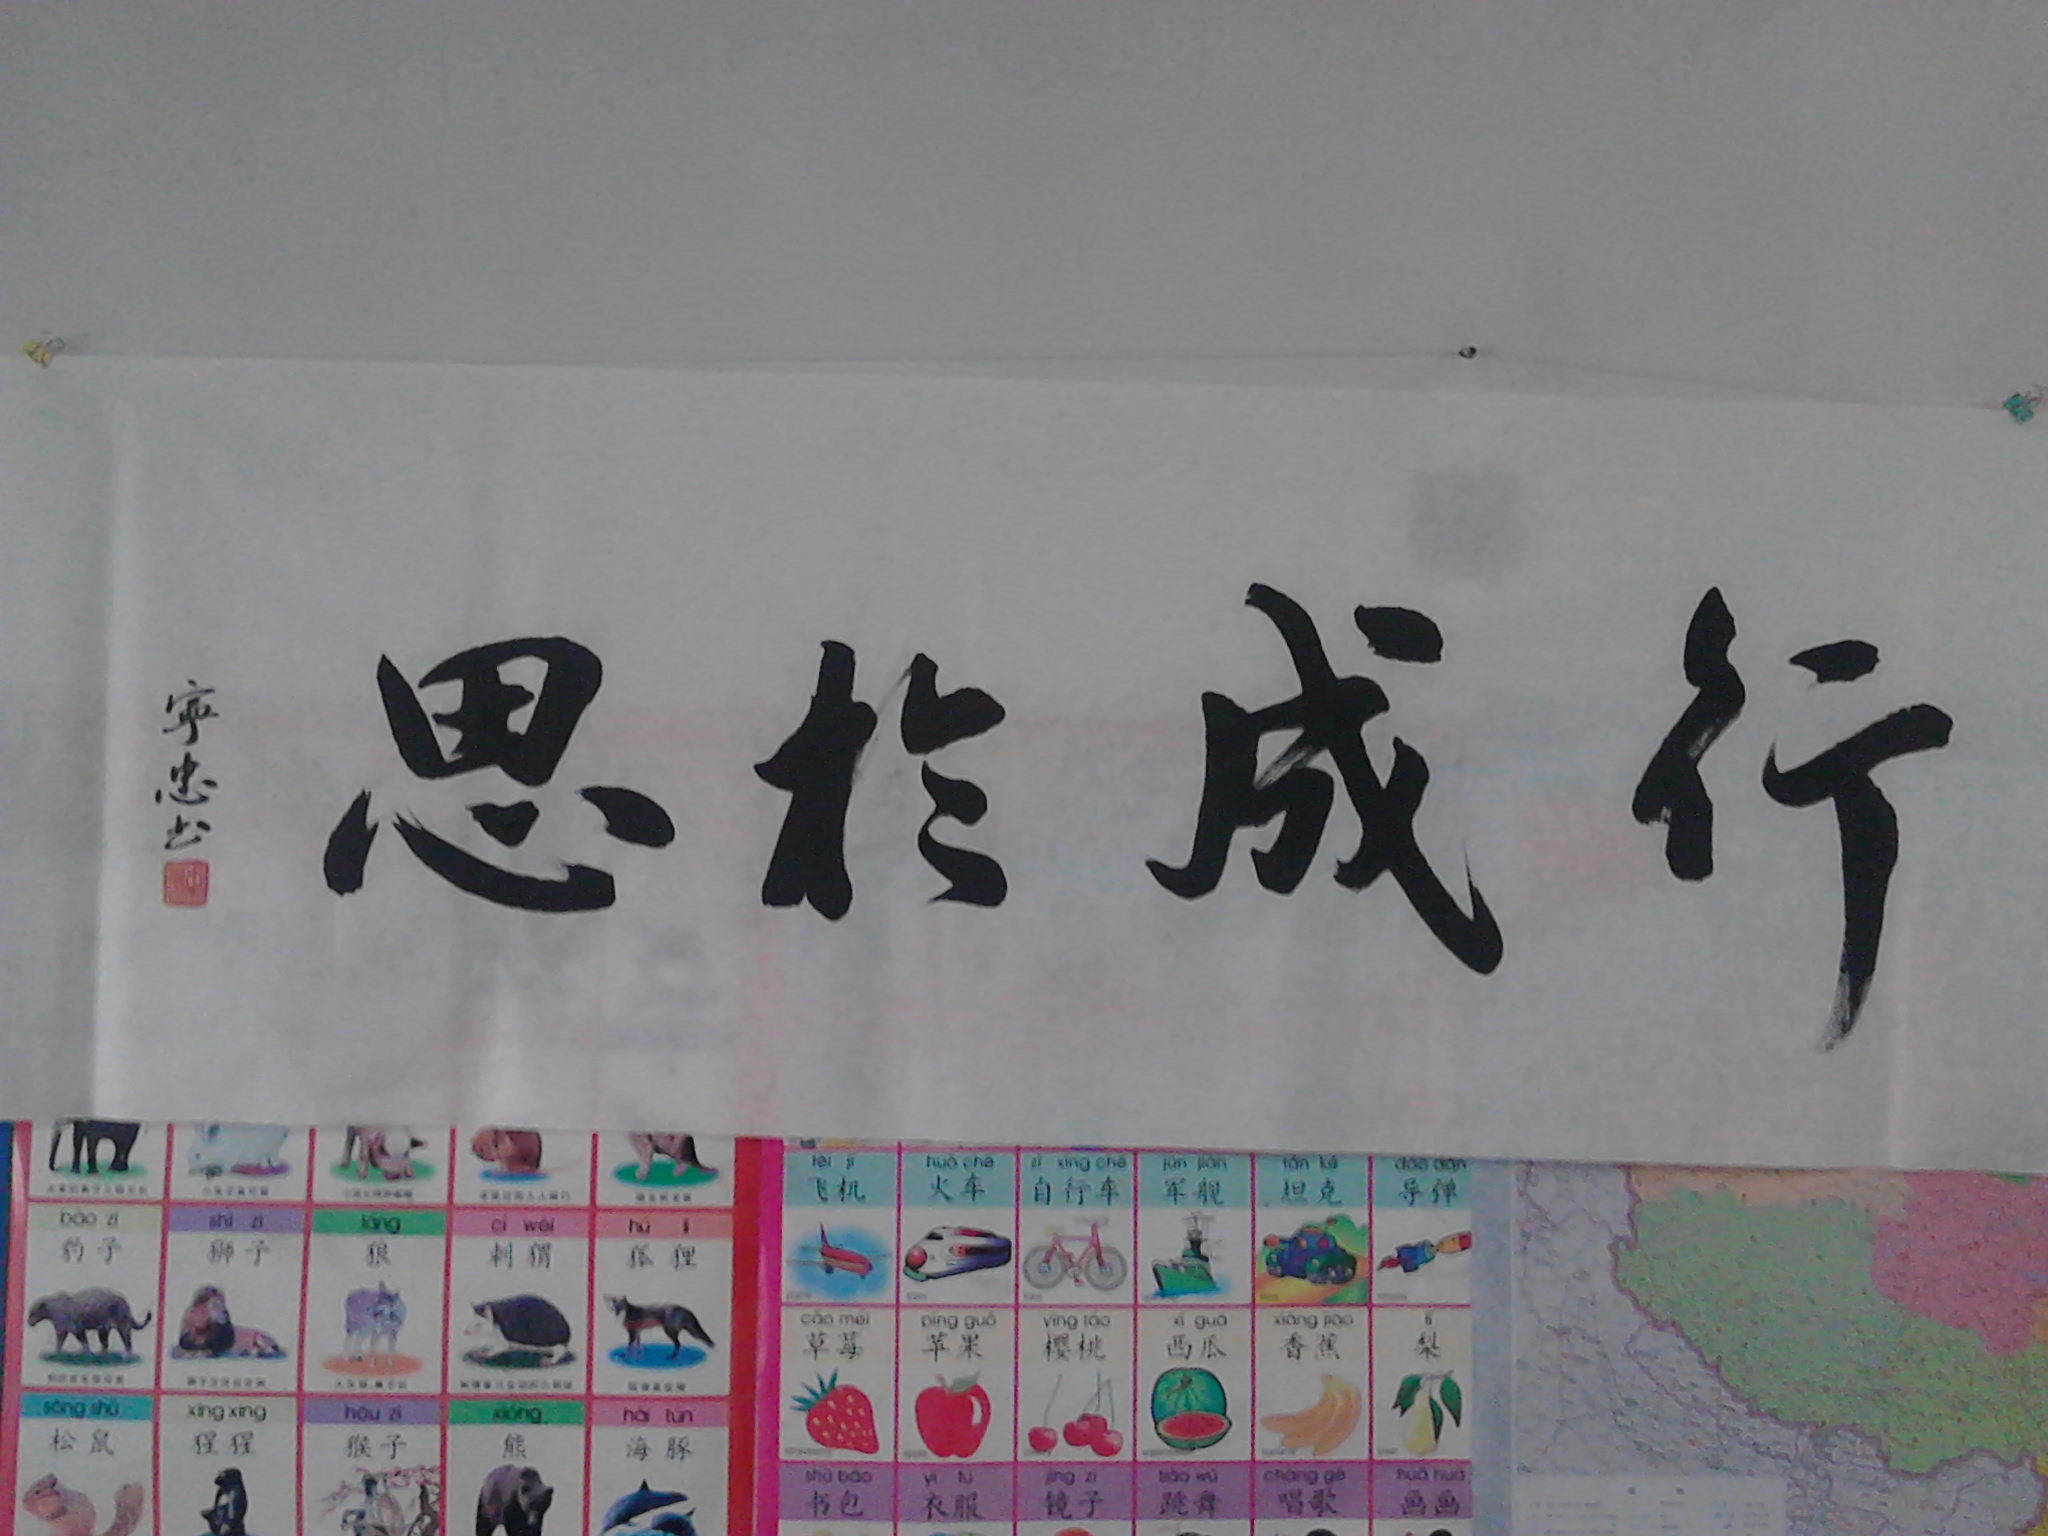 行成於思
寧忠书
bào zi
shī zi
láng
cì wèi
hú li
豹子
狮子
狼
刺猬
狐狸
sōng shǔ
xīng xing
hóu zi
xióng
hǎi tún
松鼠
猩猩
猴子
熊
海豚
fēi jī
huǒ chē
zì xíng chē
jūn jiàn
tǎn kè
dǎo dàn
飞机
火车
自行车
军舰
坦克
导弹
cǎo méi
píng guǒ
yīng táo
xī guā
xiāng jiāo
lí
草莓
苹果
樱桃
西瓜
香蕉
梨
shū bāo
yī fú
jìng zi
tiào wǔ
chàng gē
huà huà
书包
衣服
镜子
跳舞
唱歌
画画